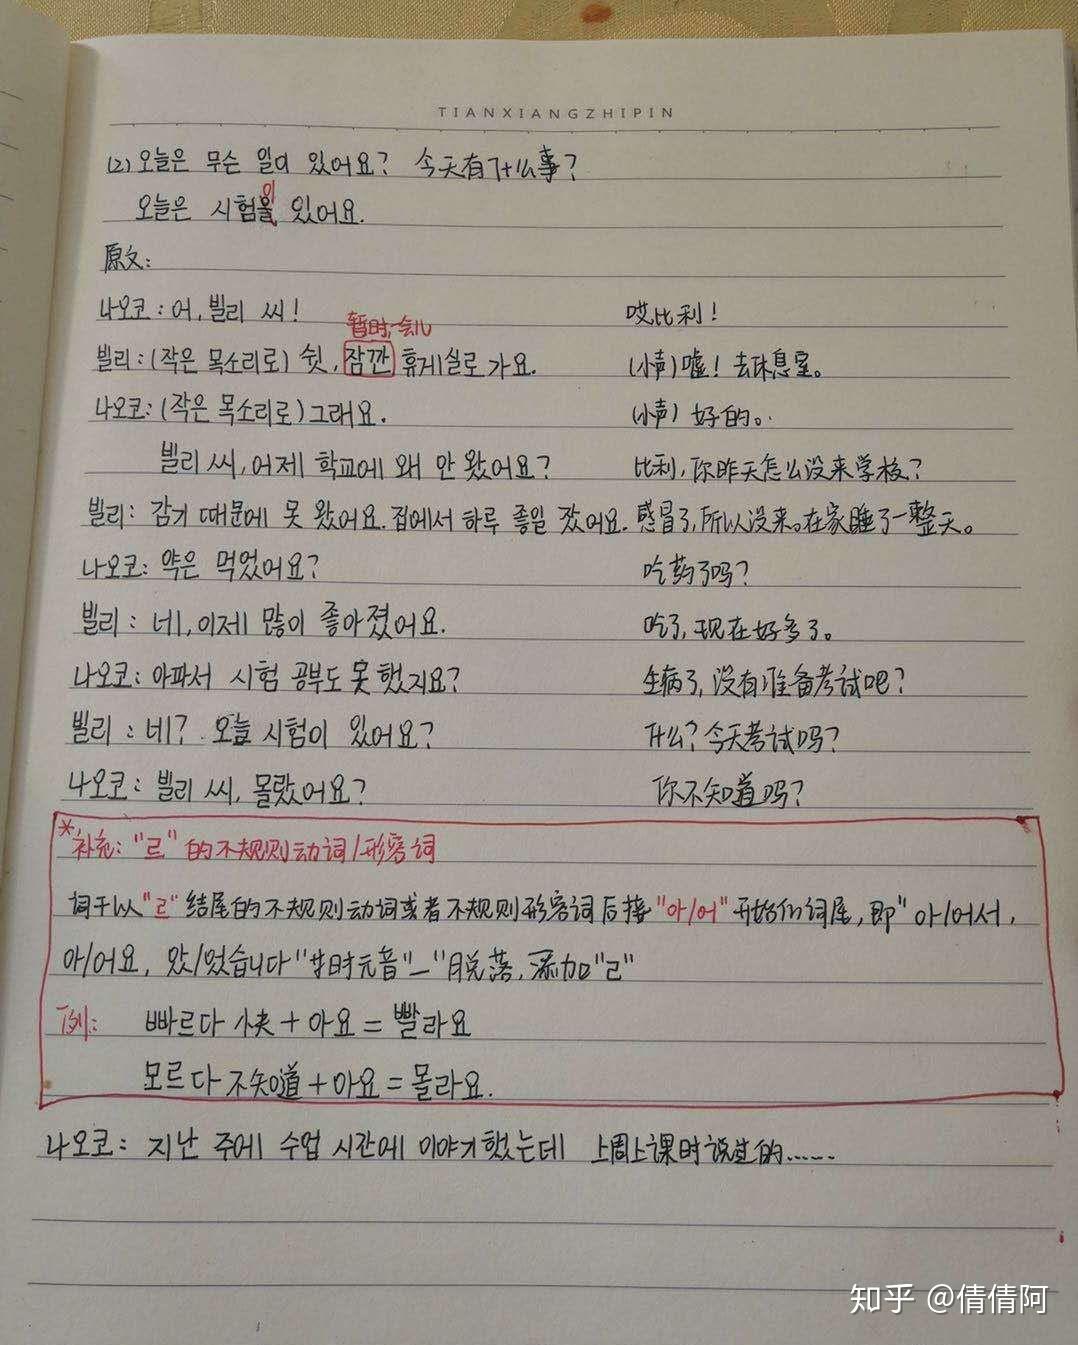 TIANXIANGZHIPIN
(2) 오늘은 무슨 일이 있어요? 今天有什么事?
오늘은 시험이 있어요.
原文:
나오코: 어, 빌리 씨! 哎比利!
暂时,一会儿
빌리: (작은 목소리로) 쉿, 잠깐 휴게실로 가요. (小声)嘘! 去休息室。
나오코: (작은 목소리로) 그래요. (小声) 好的。
빌리 씨, 어제 학교에 왜 안 왔어요? 比利, 你昨天怎么没来学校?
빌리: 감기 때문에 못 왔어요. 집에서 하루 종일 잤어요. 感冒了, 所以没来。在家睡了一整天。
나오코: 약은 먹었어요? 吃药了吗?
빌리: 네, 이제 많이 좋아졌어요. 吃了, 现在好多了。
나오코: 아파서 시험 공부도 못 했지요? 生病了, 没有准备考试吧?
빌리: 네? 오늘 시험이 있어요? 什么? 今天考试吗?
나오코: 빌리 씨, 몰랐어요? 你不知道吗?
*补充: "르" 的不规则动词/形容词
词干以"르"结尾的不规则动词或者不规则形容词后接"아/어"开始的词尾, 即"아/어서,
아/어요, 았/었습니다"时元音"ㅡ"脱落, 添加"ㄹ"
例: 빠르다 快 + 아요 = 빨라요
모르다 不知道 + 아요 = 몰라요.
나오코: 지난 주에 수업 시간에 이야기했는데 上周上课时说过的......
知乎 @倩倩阿